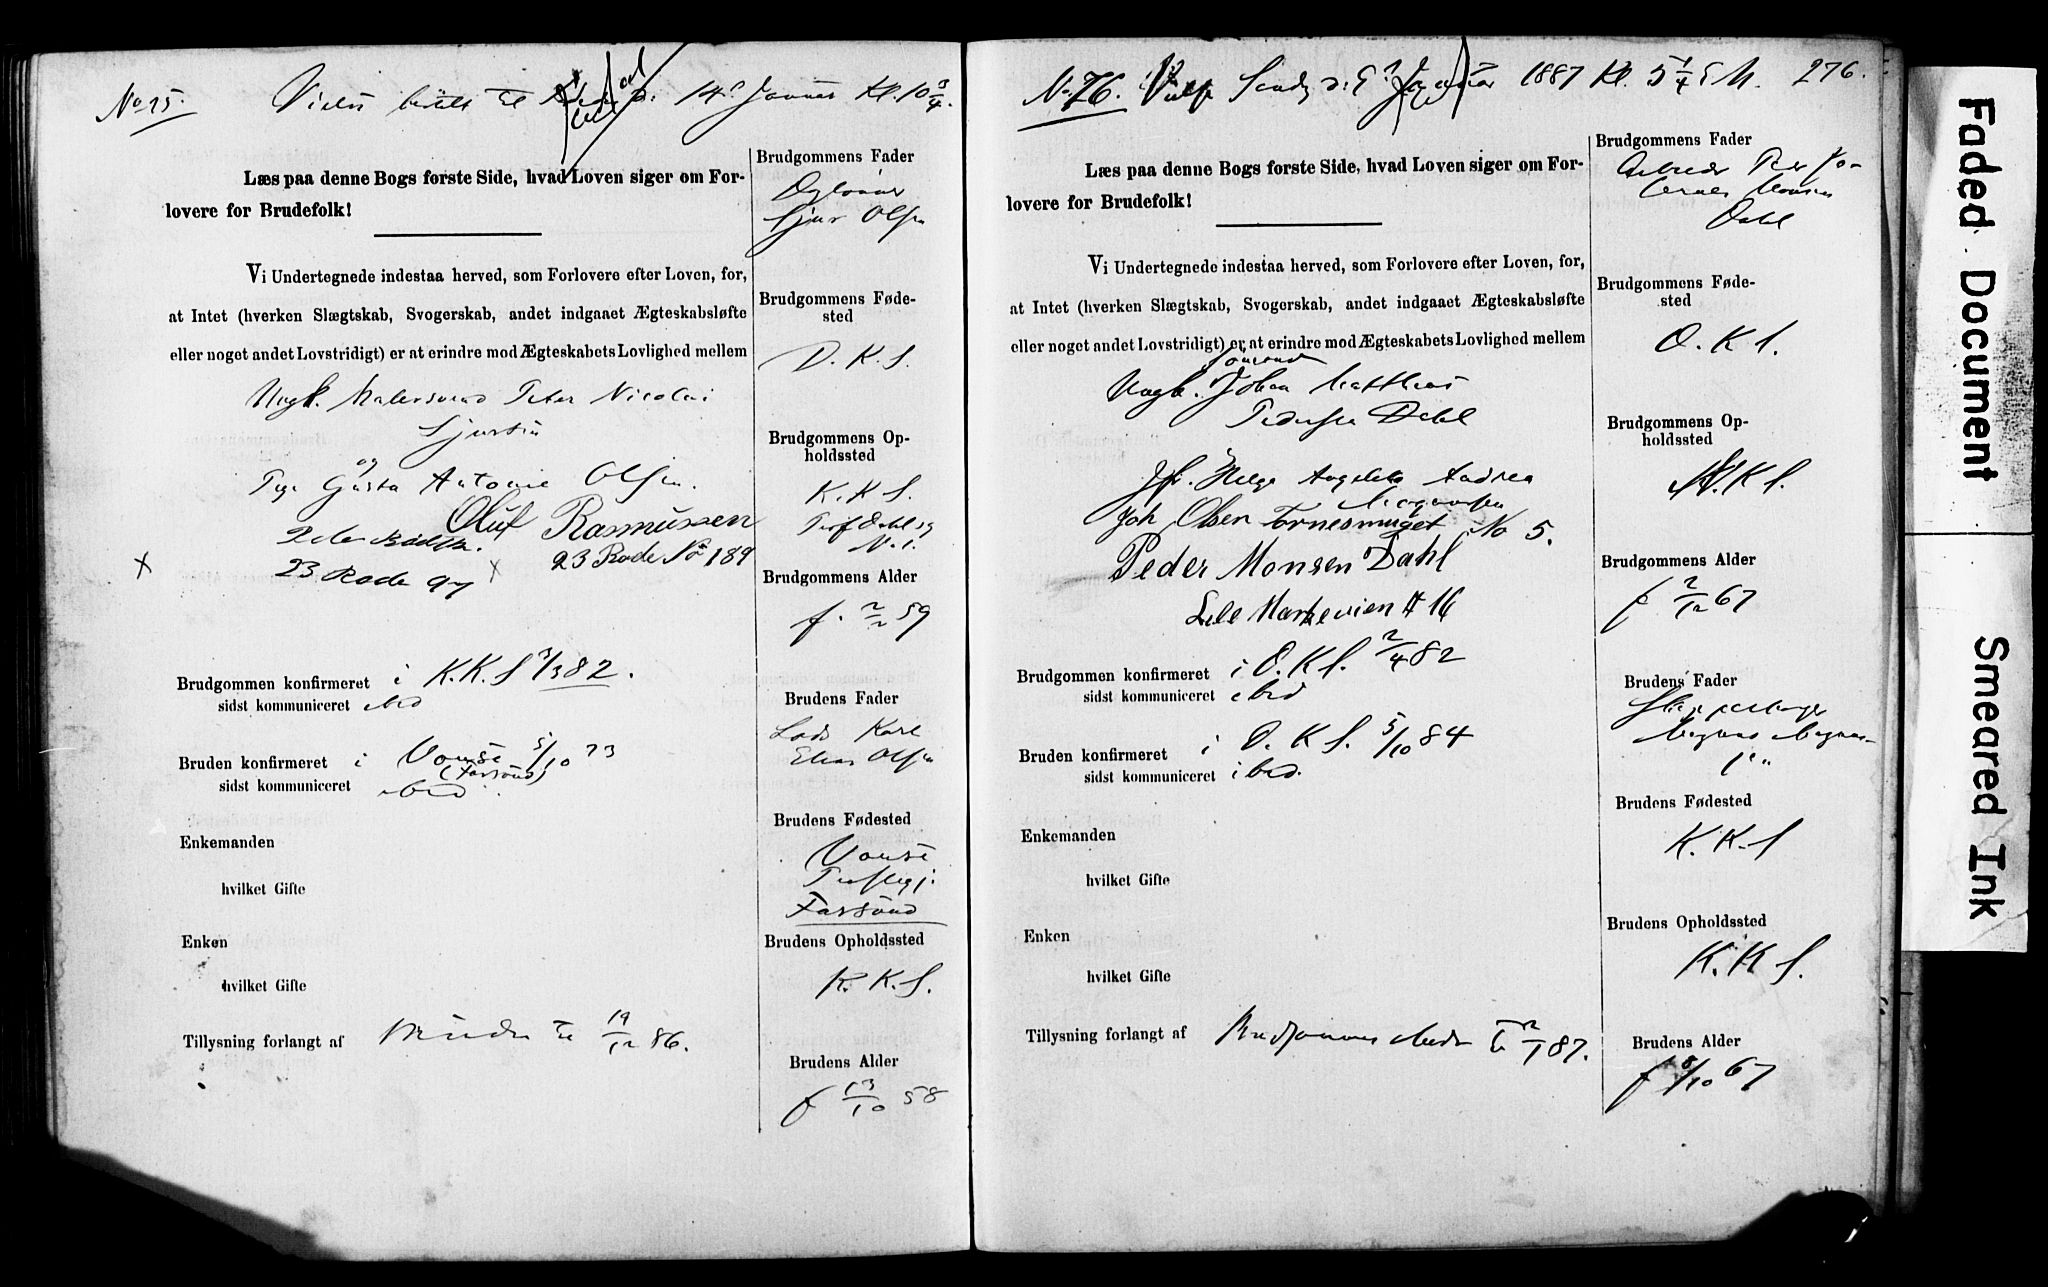 No 15.
14 Januar Kl. 10 3/4.
Læs paa denne Bogs første Side, hvad Loven siger om For-
lovere for Brudefolk!
Vi Undertegnede indestaa herved, som Forlovere efter Loven, for,
at Intet (hverken Slægtskab, Svogerskab, andet indgaaet Ægteskabsløfte
eller noget andet Lovstridigt) er at erindre mod Ægteskabets Lovlighed mellem
Ungk. Malersvend Peter Nicolai
og
Antonie Olsen.
Oluf Rasmussen
23 Rode No 189
23 Rode 97
Brudgommen konfirmeret i K.K.S 82.
sidst kommuniceret ibid
Bruden konfirmeret i Vanse 5/10 73
(Farsund)
sidst kommuniceret ibid
Enkemanden
hvilket Gifte
Enken
hvilket Gifte
Tillysning forlangt af 19/12 86.
Brudgommens Fader
Sjur Olsen
Brudgommens Føde-
sted
D. K. S.
Brudgommens Op-
holdssted
K. K S.
Brudgommens Alder
f. 59
Brudens Fader
Lods Karl
Elias Olsen
Brudens Fødested
Vanse
Præstegj.
Farsund
Brudens Opholdssted
K. K. S.
Brudens Alder
f 13/10 58
No 76. 1887 Kl. 5 1/4 E M. 276.
Læs paa denne Bogs første Side, hvad Loven siger om For-
lovere for Brudefolk!
Vi Undertegnede indestaa herved, som Forlovere efter Loven, for,
at Intet (hverken Slægtskab, Svogerskab, andet indgaaet Ægteskabsløfte
eller noget andet Lovstridigt) er at erindre mod Ægteskabets Lovlighed mellem
Sømand
Ungk. Johan Matthias
Pedersen Dahl
Helga Angelete Andrea
Magnussen
Joh Olsen Tornesmuget No 5.
Peder Monsen Dahl
Lile Markevien # 16
Brudgommen konfirmeret i D. K S. 2/4 82
sidst kommuniceret ibid
Bruden konfirmeret i D. K S. 5/10 84
sidst kommuniceret ibid.
Enkemanden
hvilket Gifte
Enken
hvilket Gifte
Tillysning forlangt af Brudgommen 2/1 87.
Brudgommens Fader
Arbeider Peder Jo-
Monsen
Dahl
Brudgommens Føde-
sted
D. K S.
Brudgommens Op-
holdssted
N. K S.
Brudgommens Alder
f 2/12 67
Brudens Fader
Magnus Magnus-
Brudens Fødested
K. K. S
Brudens Opholdssted
K. K S.
Brudens Alder
f 8/10 67
Faded Document
Smeared Ink